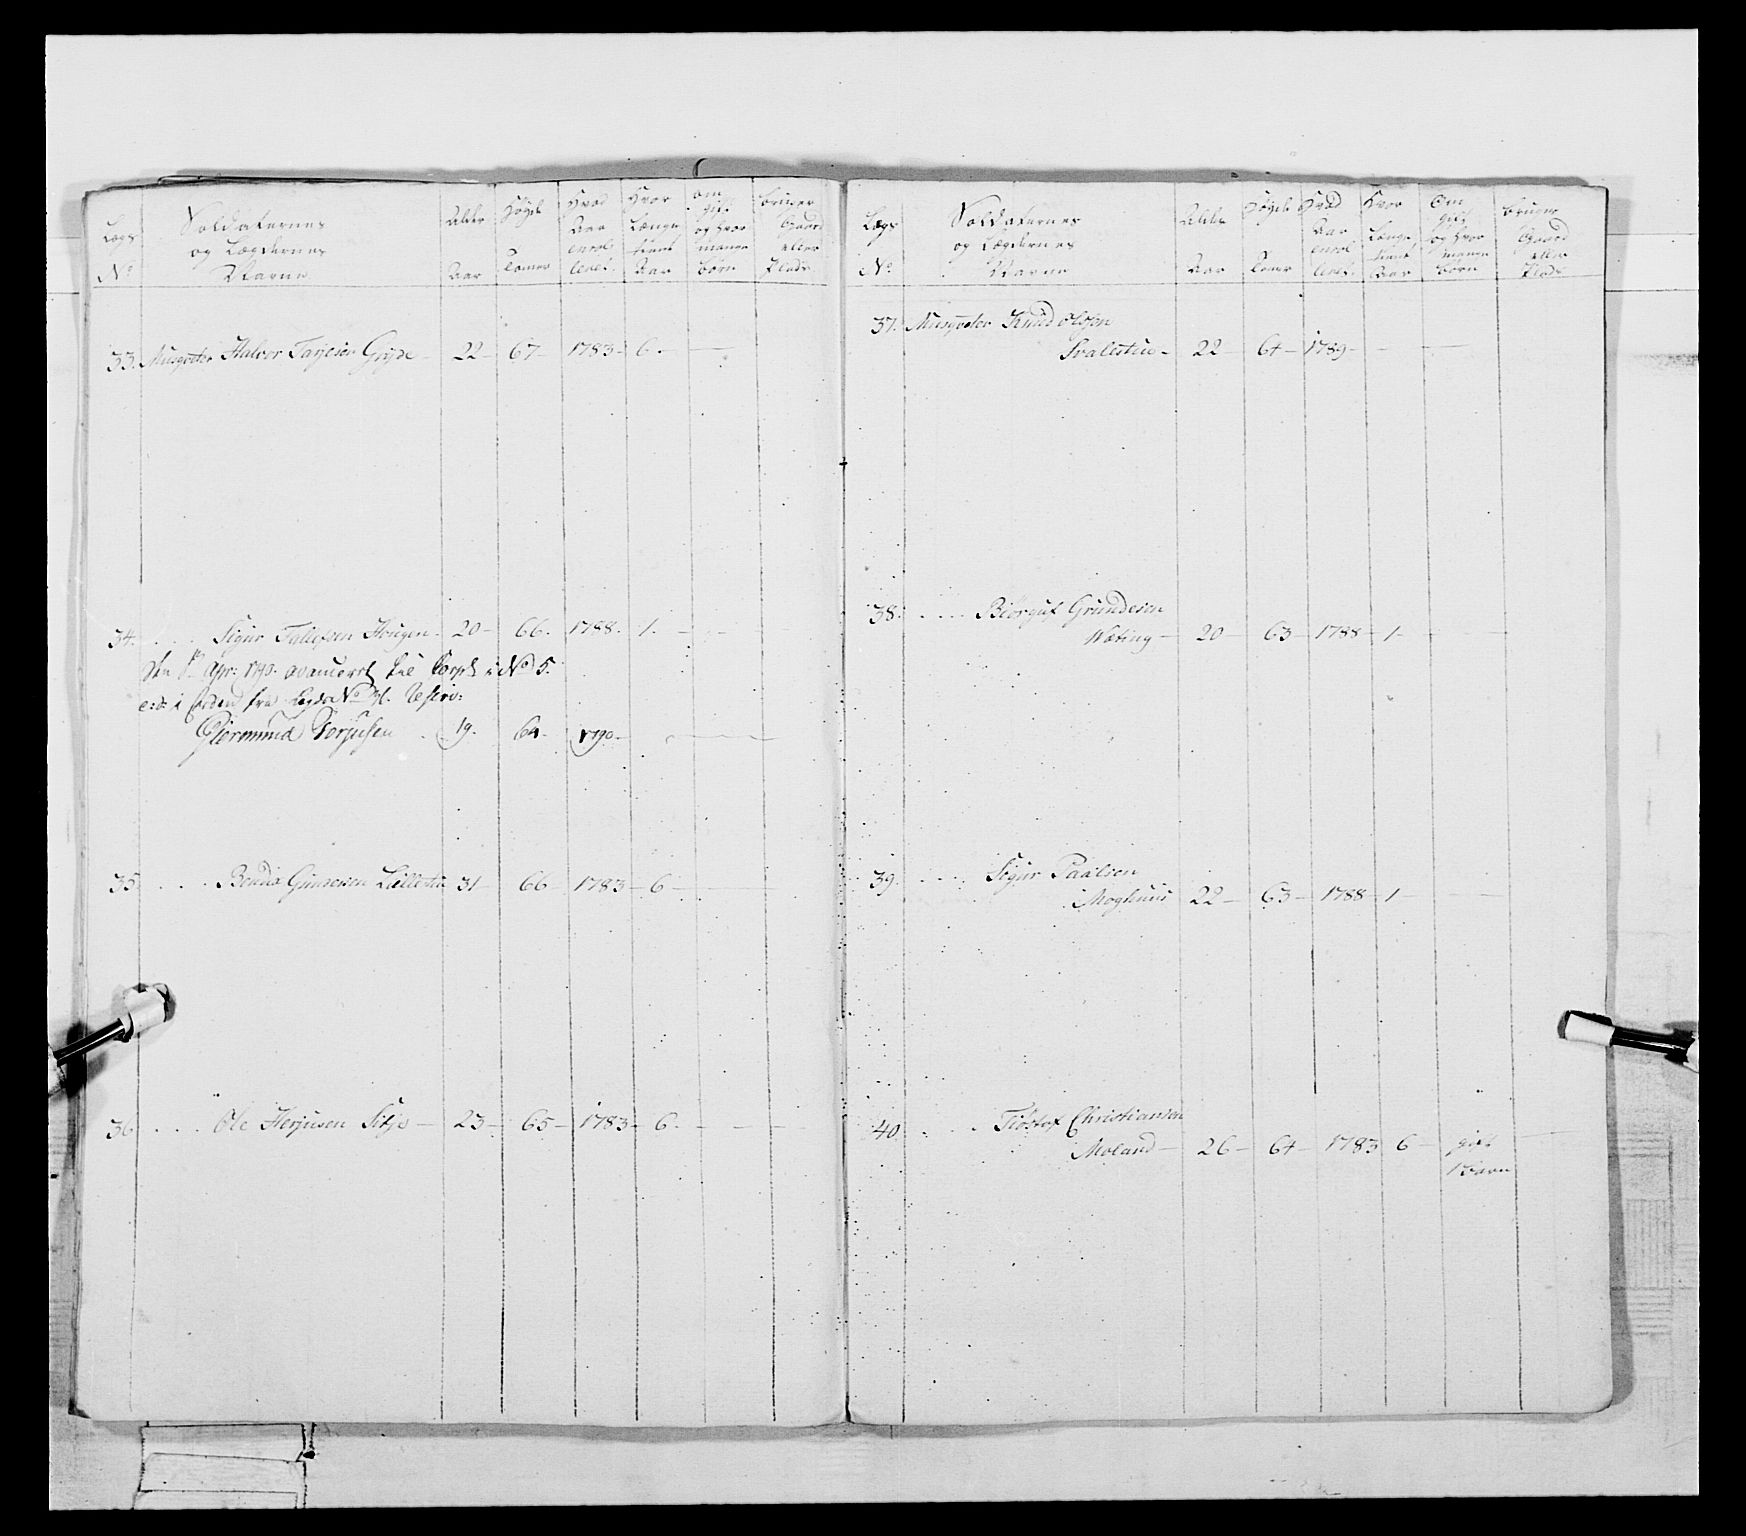 Lægs No
Soldaternes og Lægdernes Navne
Alder Aar
Høyde Tomer
Hvad Aar enrolleret
Hvor Længe tient Aar
Om gift og hvor mange børn
bruger Gaard eller Plads
33. Musqveter Halvor Tarjesen 22 – 67 – 1783 – 6. –
34. . . . Sigur Tallefsen Hougen – 20 – 66. 1788. 1. –
Apr: 1790. avanceret til Corpl i No 5.
Giermund Torjusen . 19. 64. 1790.
35 . . . Bendix Gunersen 31 – 66 – 1783 – 6 –
36 . . . Ole Herjusen 23 – 65 – 1783 – 6. – – –
Lægs No
Soldaternes og Lægdernes Navne
Alder Aar
Høyde Tomer
Hvad Aar enrolleret
Hvor Længe tient Aar
Om gift og hvor mange børn
bruger Gaard eller Plads
37. Musqveter Knud Olsen
Svalestue – 22 – 64 – 1789 – – –
38. . . . Biørguf Grundesen
Wæting – 20 – 63 – 1788 – 1 – – –
39. . . . Sigur Paalsen
Moghuus 22 – 63 – 1788 – 1 – – –
40 . . . Tiøstof Christiansen
Moland – 26 – 64 – 1783 6 – gift –
1 Barn